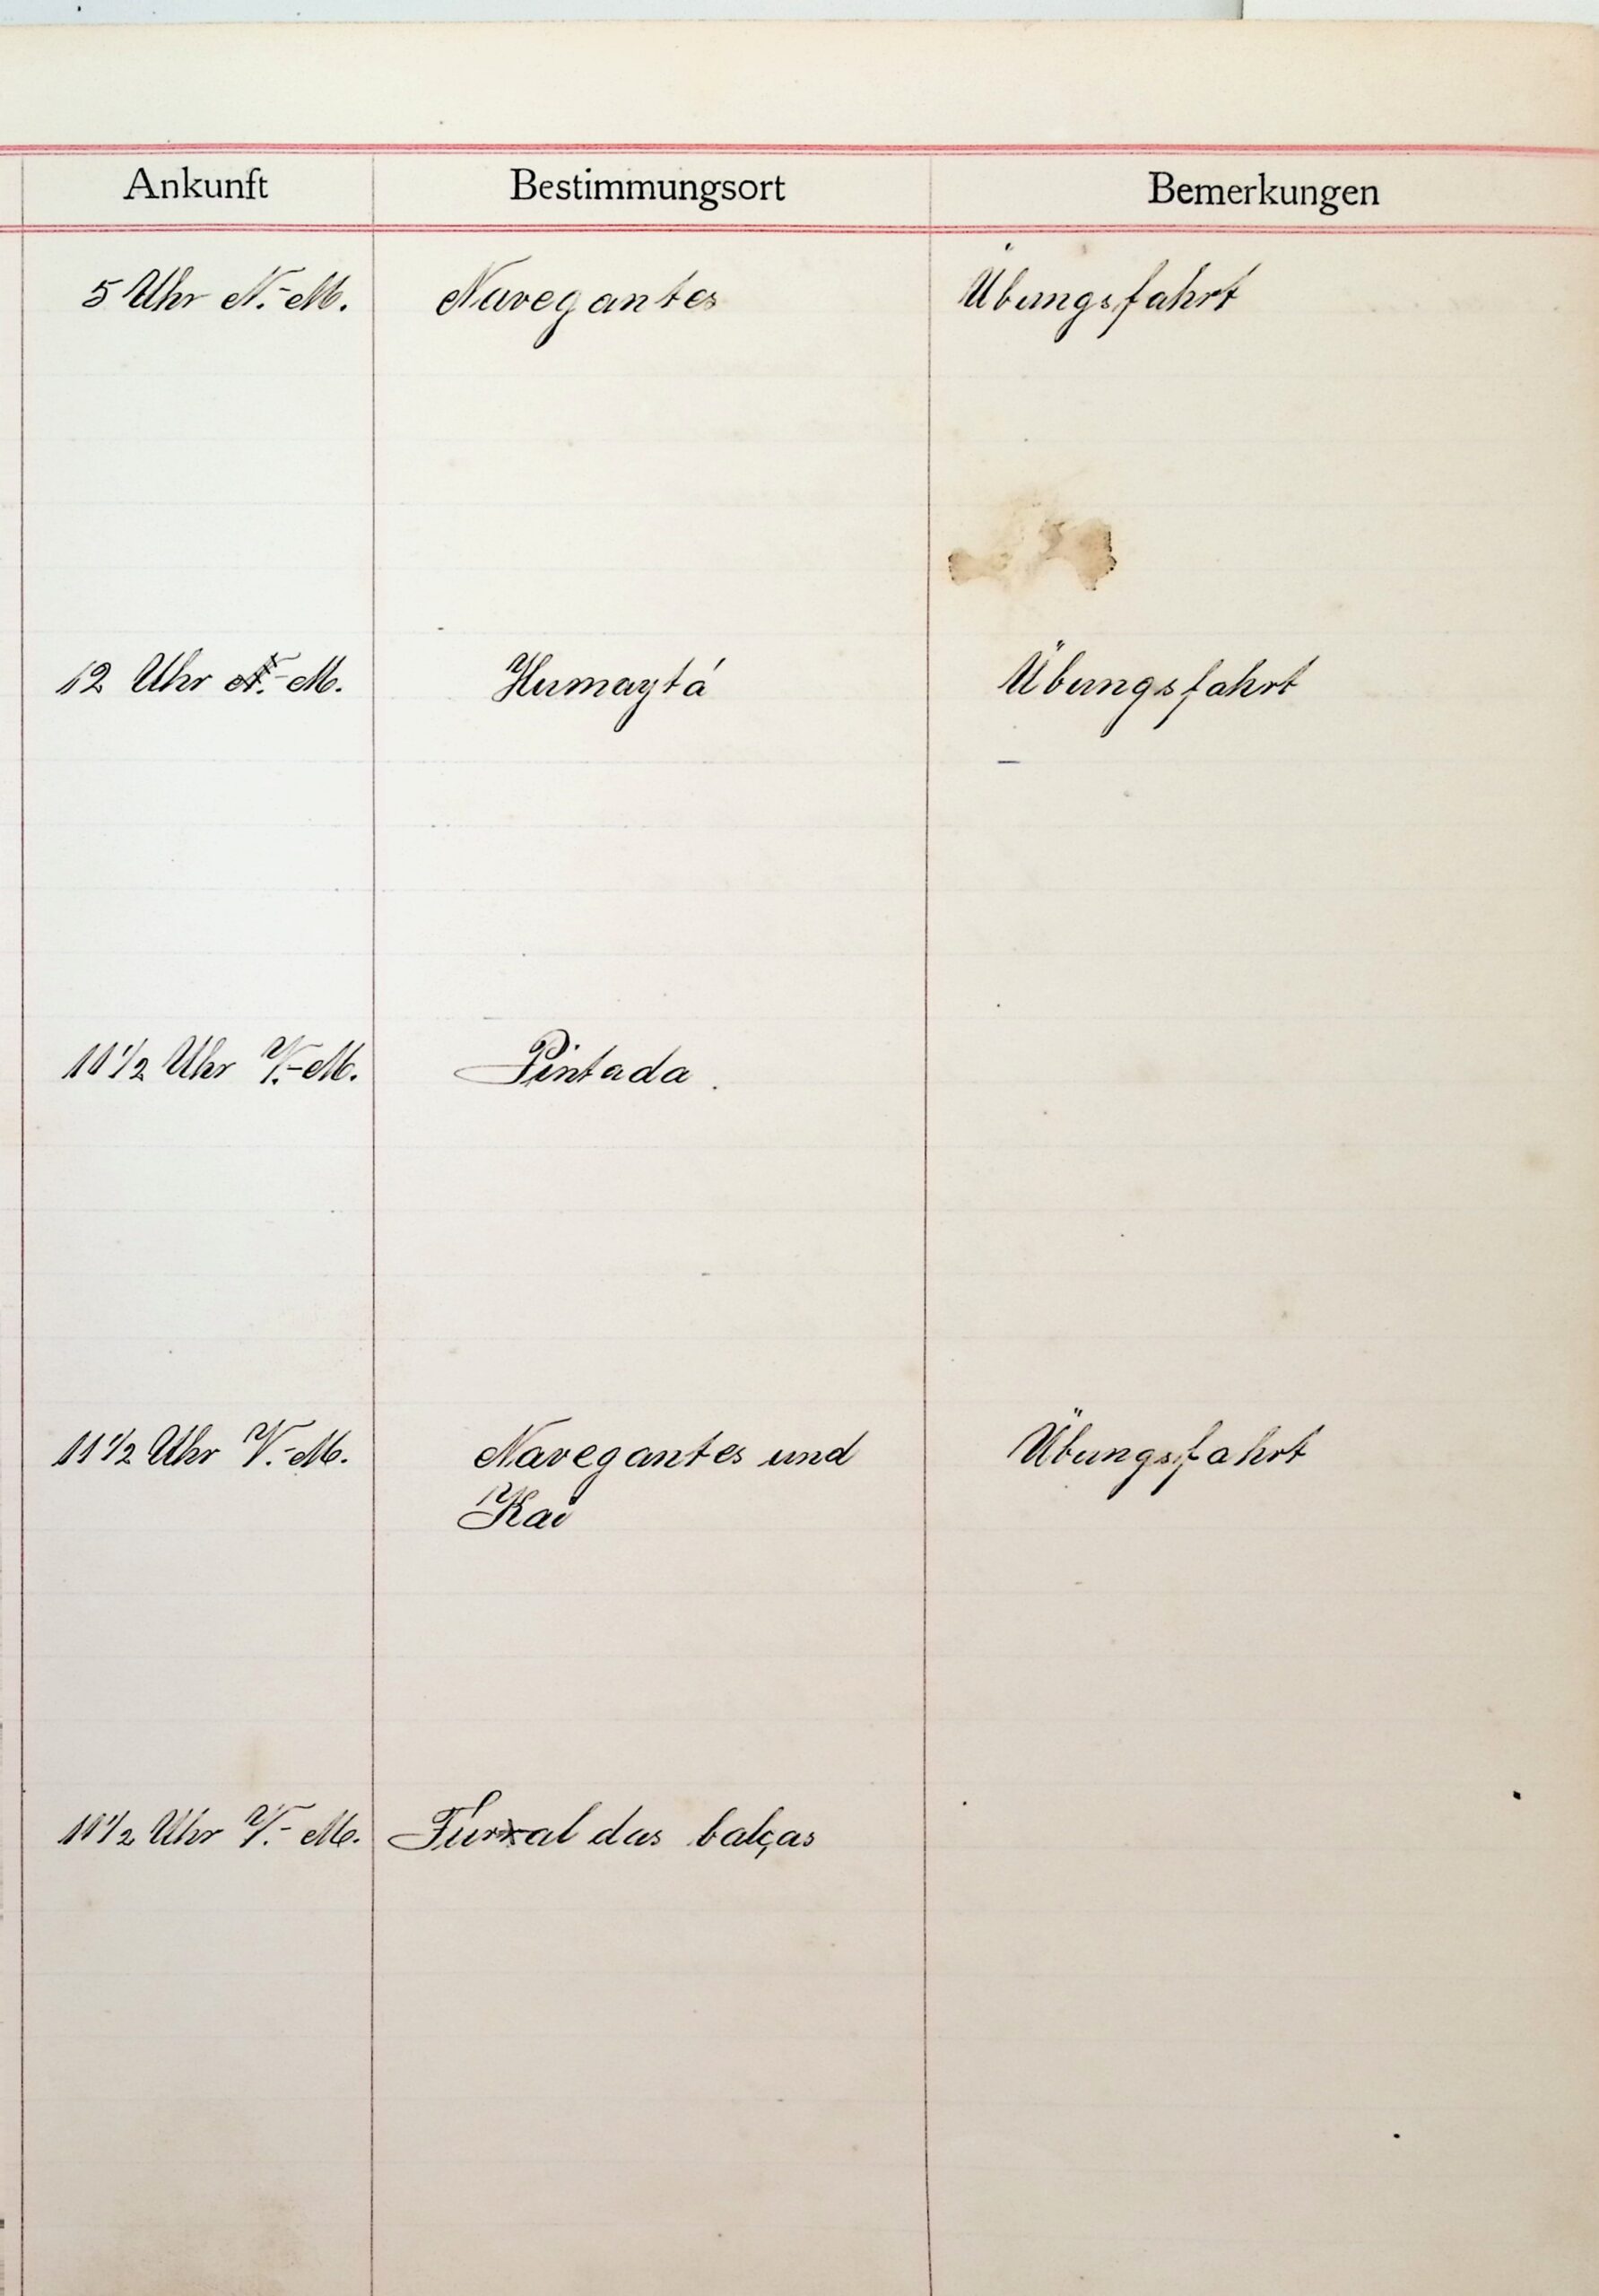 Ankunft Bestimmungsort Bemerkungen
5 Uhr N.-M. Navegantes Übungsfahrt
12 Uhr N.-M. Humaytá Übungsfahrt
11 1/2 Uhr V.-M. Pintada.
11 1/2 Uhr V.-M. Navegantes und Übungsfahrt
Kai
11 1/2 Uhr V.-M. das balças